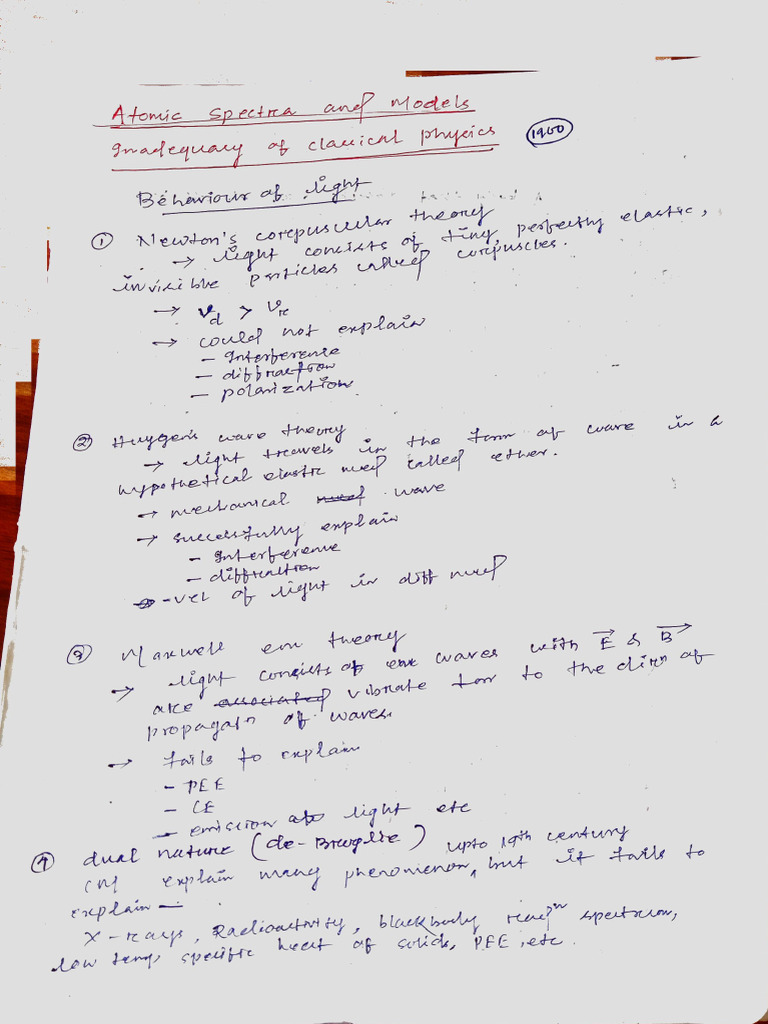 Atomic Spectra and Models
Inadequacy of classical physics 1900
Behaviour of light
① Newton's corpuscular theory
→ light consists of tiny perfectly elastic,
invisible particles called corpuscles.
→ Vd > Vr
→ could not explain
- Interference
- diffraction
- polarization
② Huygen's wave theory
→ light travels in the form of wave in a
hypothetical elastic med called ether.
→ mechanical med wave
→ successfully explain
- Interference
- diffraction
- vel of light in diff med
③ Maxwell em theory
→ light consists of em waves with E & B
are associated vibrate to the dirn of
propagatn of waves.
→ fails to explain
- PEE
- CE
- emission of light etc
④ dual nature (de-Broglie) upto 19th century
CM explain many phenomenon, but it fails to
explain —
X-rays, Radioactivity, blackbody spectrum,
low temp specific heat of solids, PEE, etc.